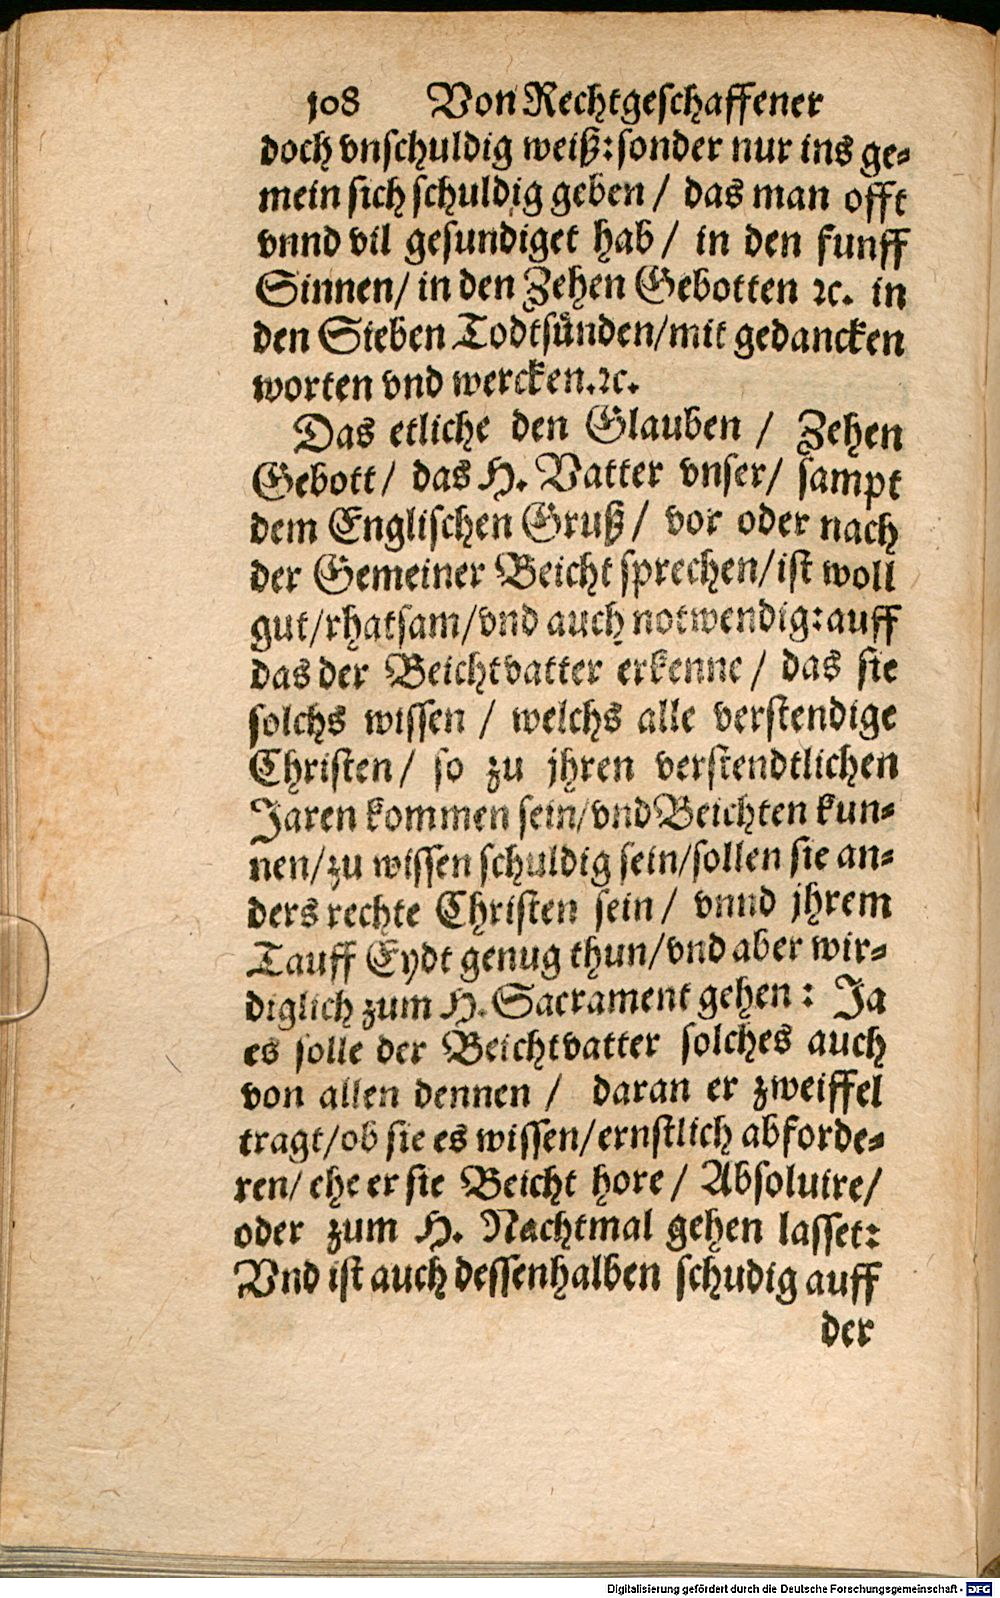 108 Von Rechtgeschaffener
doch vnschuldig weiß: sonder nur ins ge-
mein sich schuldig geben / das man offt
vnnd vil gesundiget hab / in den funff
Sinnen / in den Zehen Gebotten ꝛc. in
den Sieben Todtsünden / mit gedancken
worten vnd wercken. ꝛc.
Das etliche den Glauben / Zehen
Gebott / das H. Vatter vnser / sampt
dem Englischen Gruß / vor oder nach
der Gemeiner Beicht sprechen / ist woll
gut / rhatsam / vnd auch notwendig: auff
das der Beichtvatter erkenne / das sie
solchs wissen / welchs alle verstendige
Christen / so zu jhren verstendtlichen
Jaren kommen sein / vnd Beichten kun-
nen / zu wissen schuldig sein / sollen sie an-
ders rechte Christen sein / vnnd jhrem
Tauff Eydt genug thun / vnd aber wir-
diglich zum H. Sacrament gehen: Ja
es solle der Beichtvatter solches auch
von allen dennen / daran er zweiffel
tragt / ob sie es wissen / ernstlich abforde-
ren / ehe er sie Beicht hore / Absoluire /
oder zum H. Nachtmal gehen lasset:
Vnd ist auch dessenhalben schudig auff
der
Digitalisierung gefördert durch die Deutsche Forschungsgemeinschaft - DFG